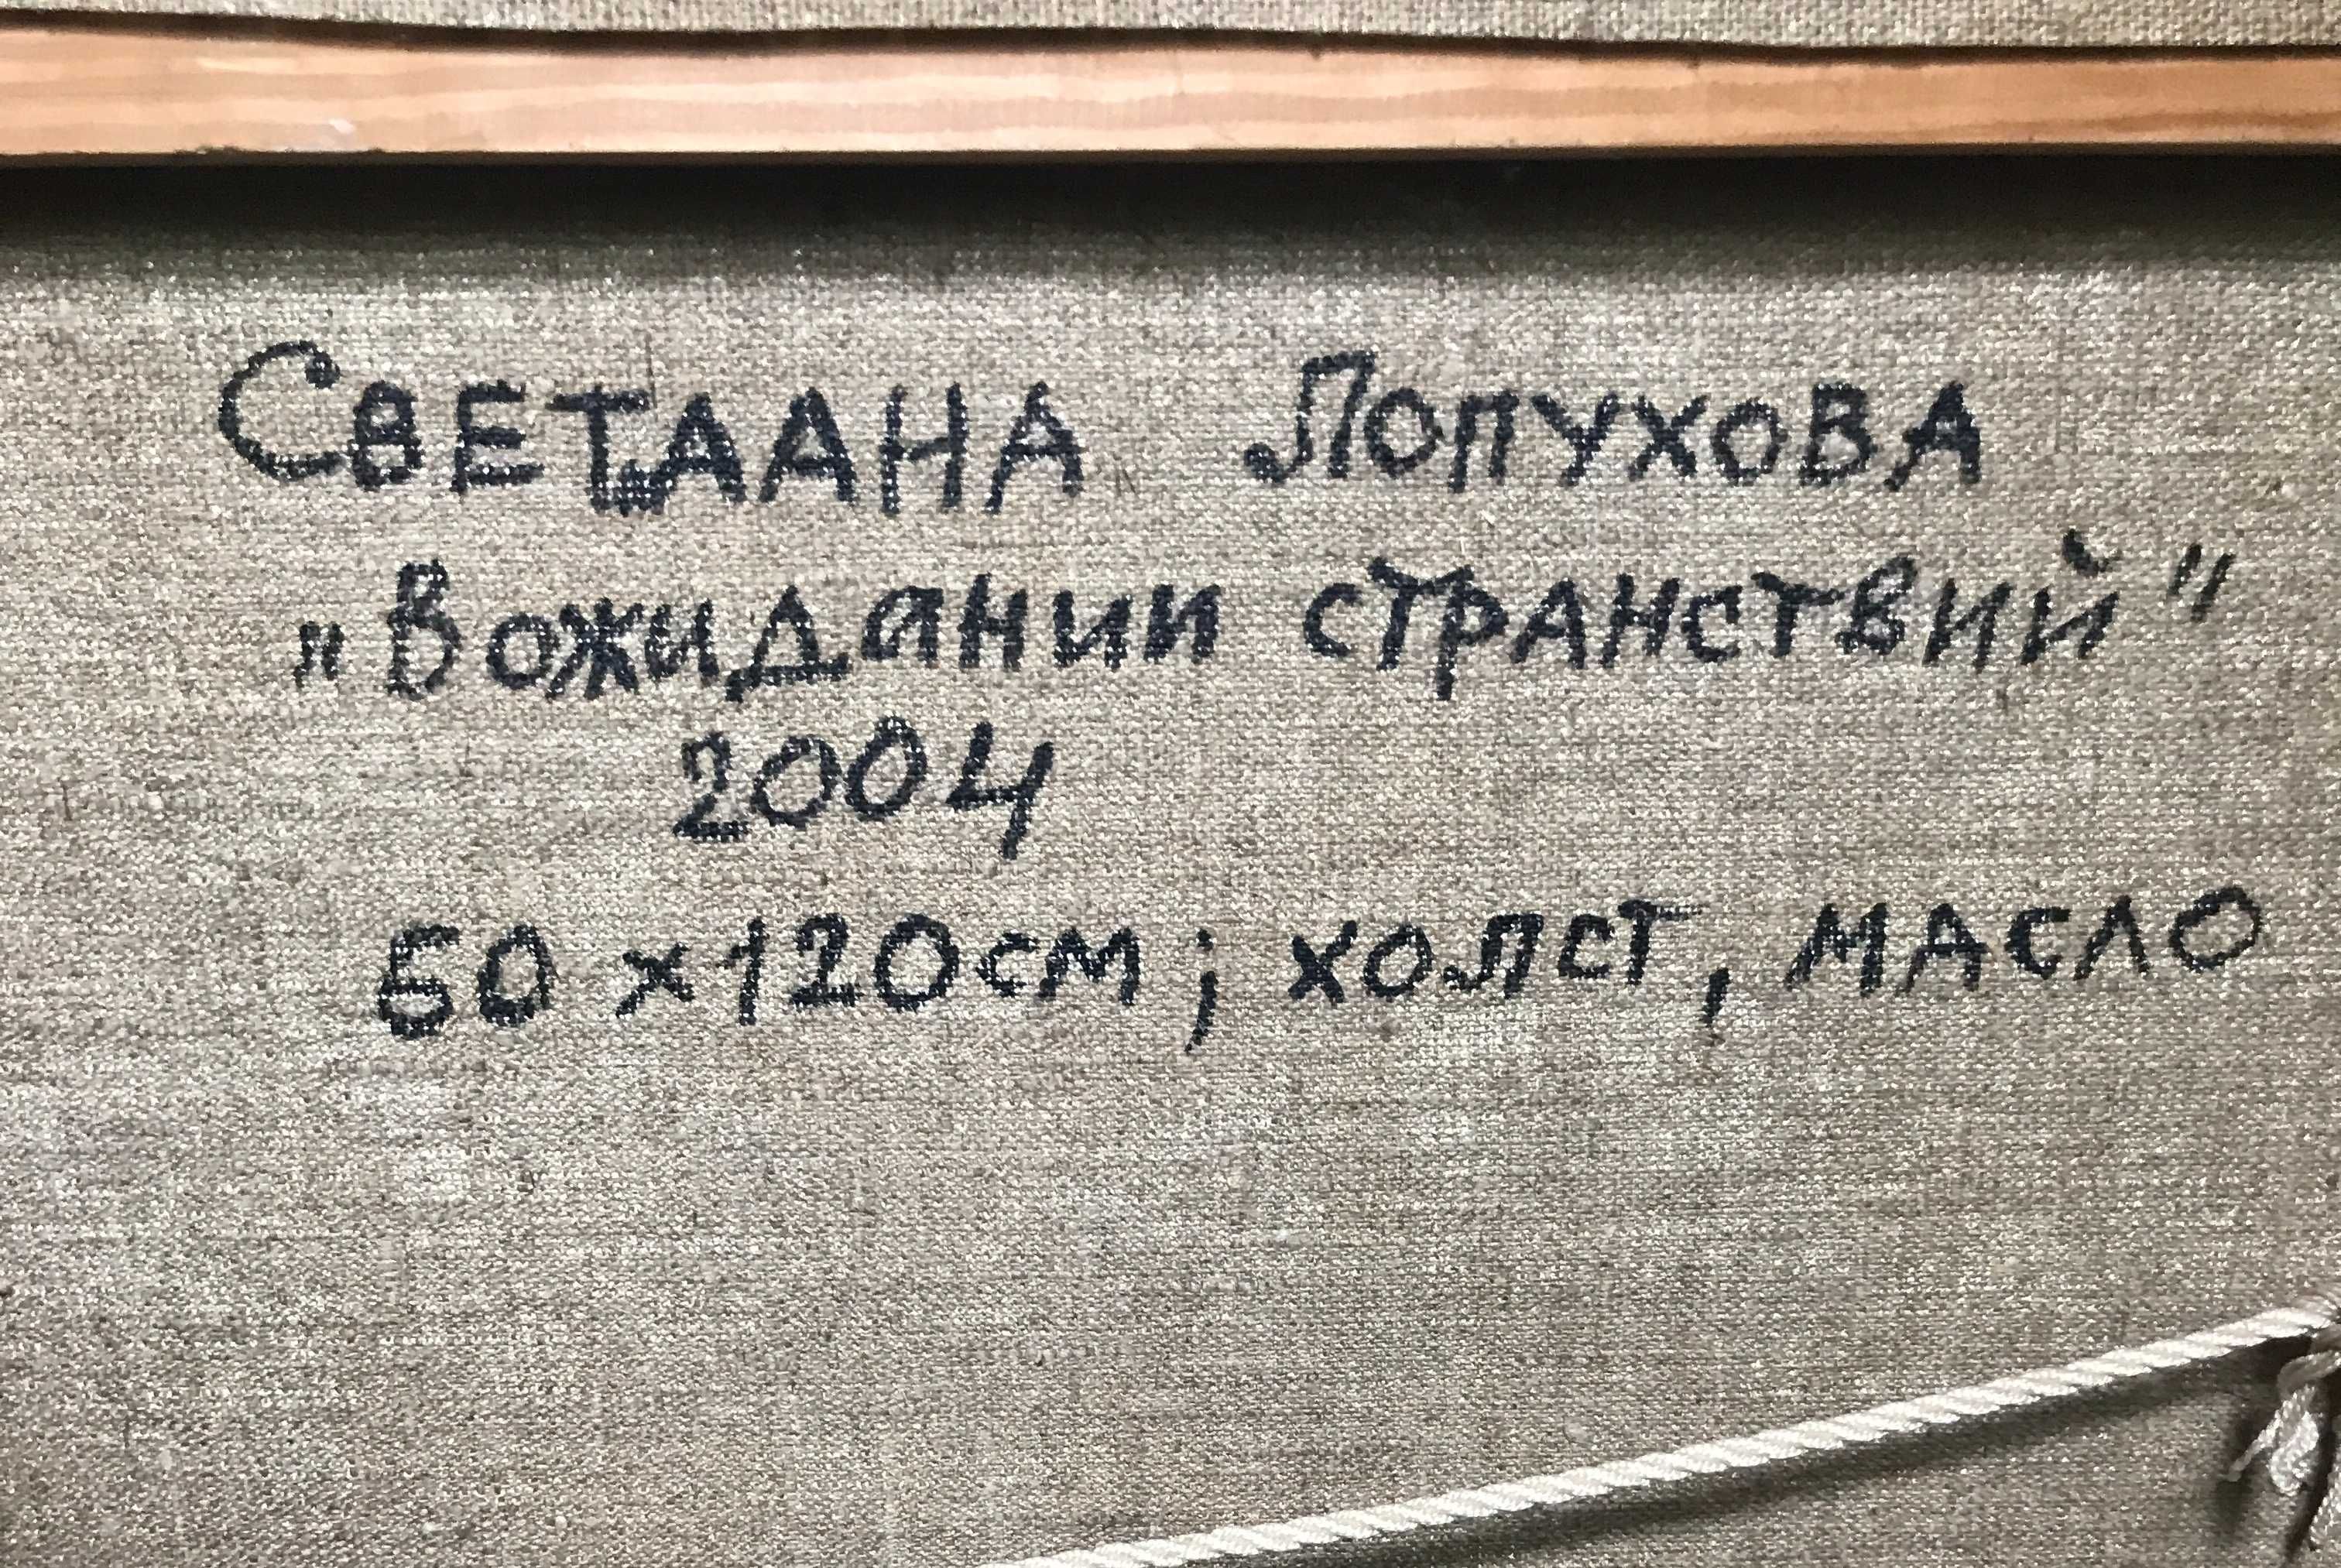 Светлана Лопухова
„В ожидании странствий"
2004
60 х 120см; холст, масло